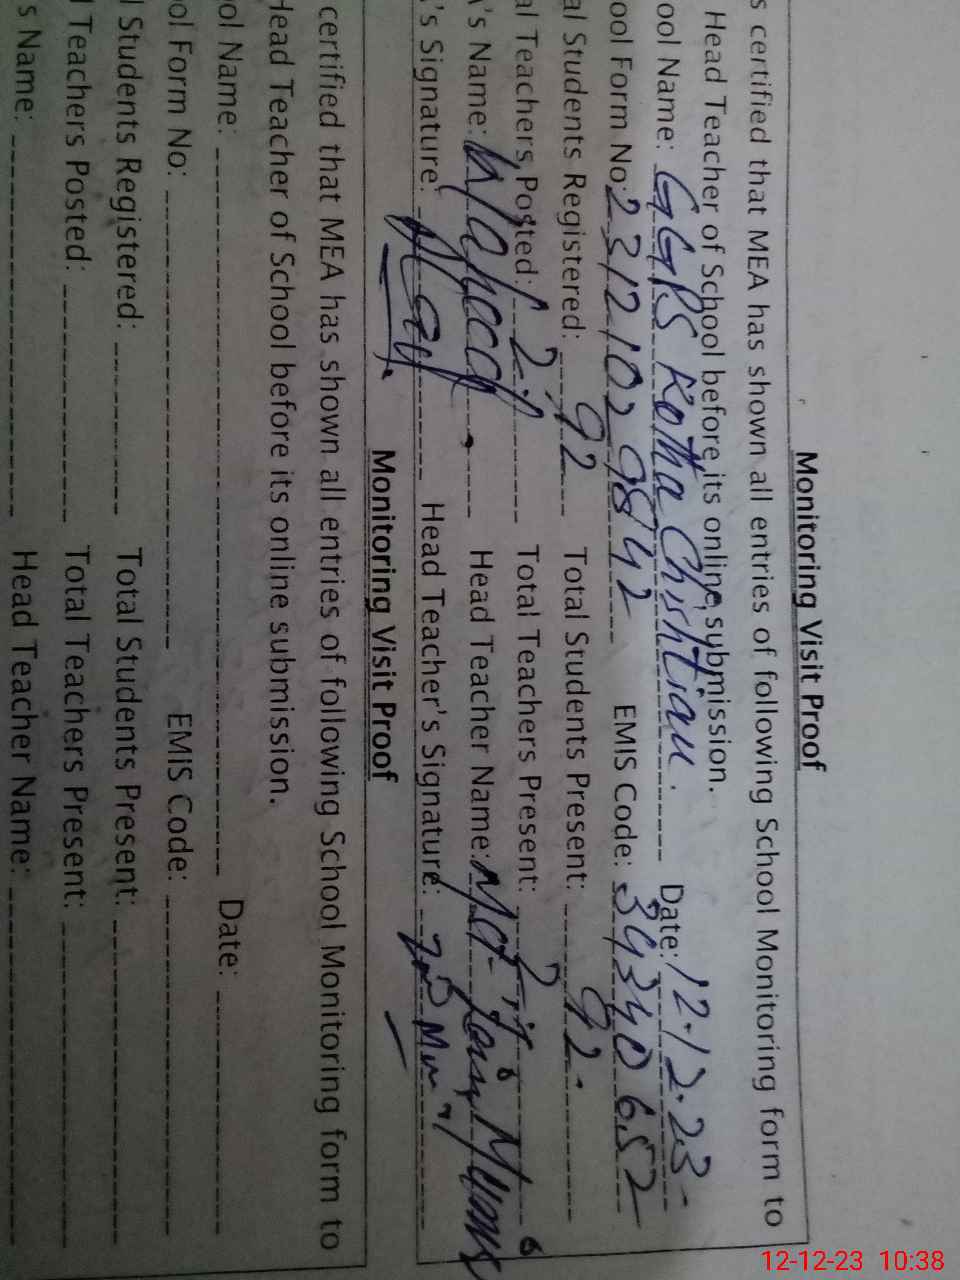 Monitoring Visit Proof
s certified that MEA has shown all entries of following School Monitoring form to
Head Teacher of School before its online submission.
ool Name: GGPS Kotha Chishtian. Date: 12.12.23
ool Form No: 231210298742 EMIS Code: 39340652
al Students Registered: 92 Total Students Present: 92.
al Teachers Posted: 2 Total Teachers Present: 2
A's Name: Head Teacher Name:
's Signature: Head Teacher's Signature:
Monitoring Visit Proof
certified that MEA has shown all entries of following School Monitoring form to
Head Teacher of School before its online submission.
ol Name: Date:
ol Form No: EMIS Code:
l Students Registered: Total Students Present:
l Teachers Posted: Total Teachers Present:
s Name: Head Teacher Name:
12-12-23 10:38